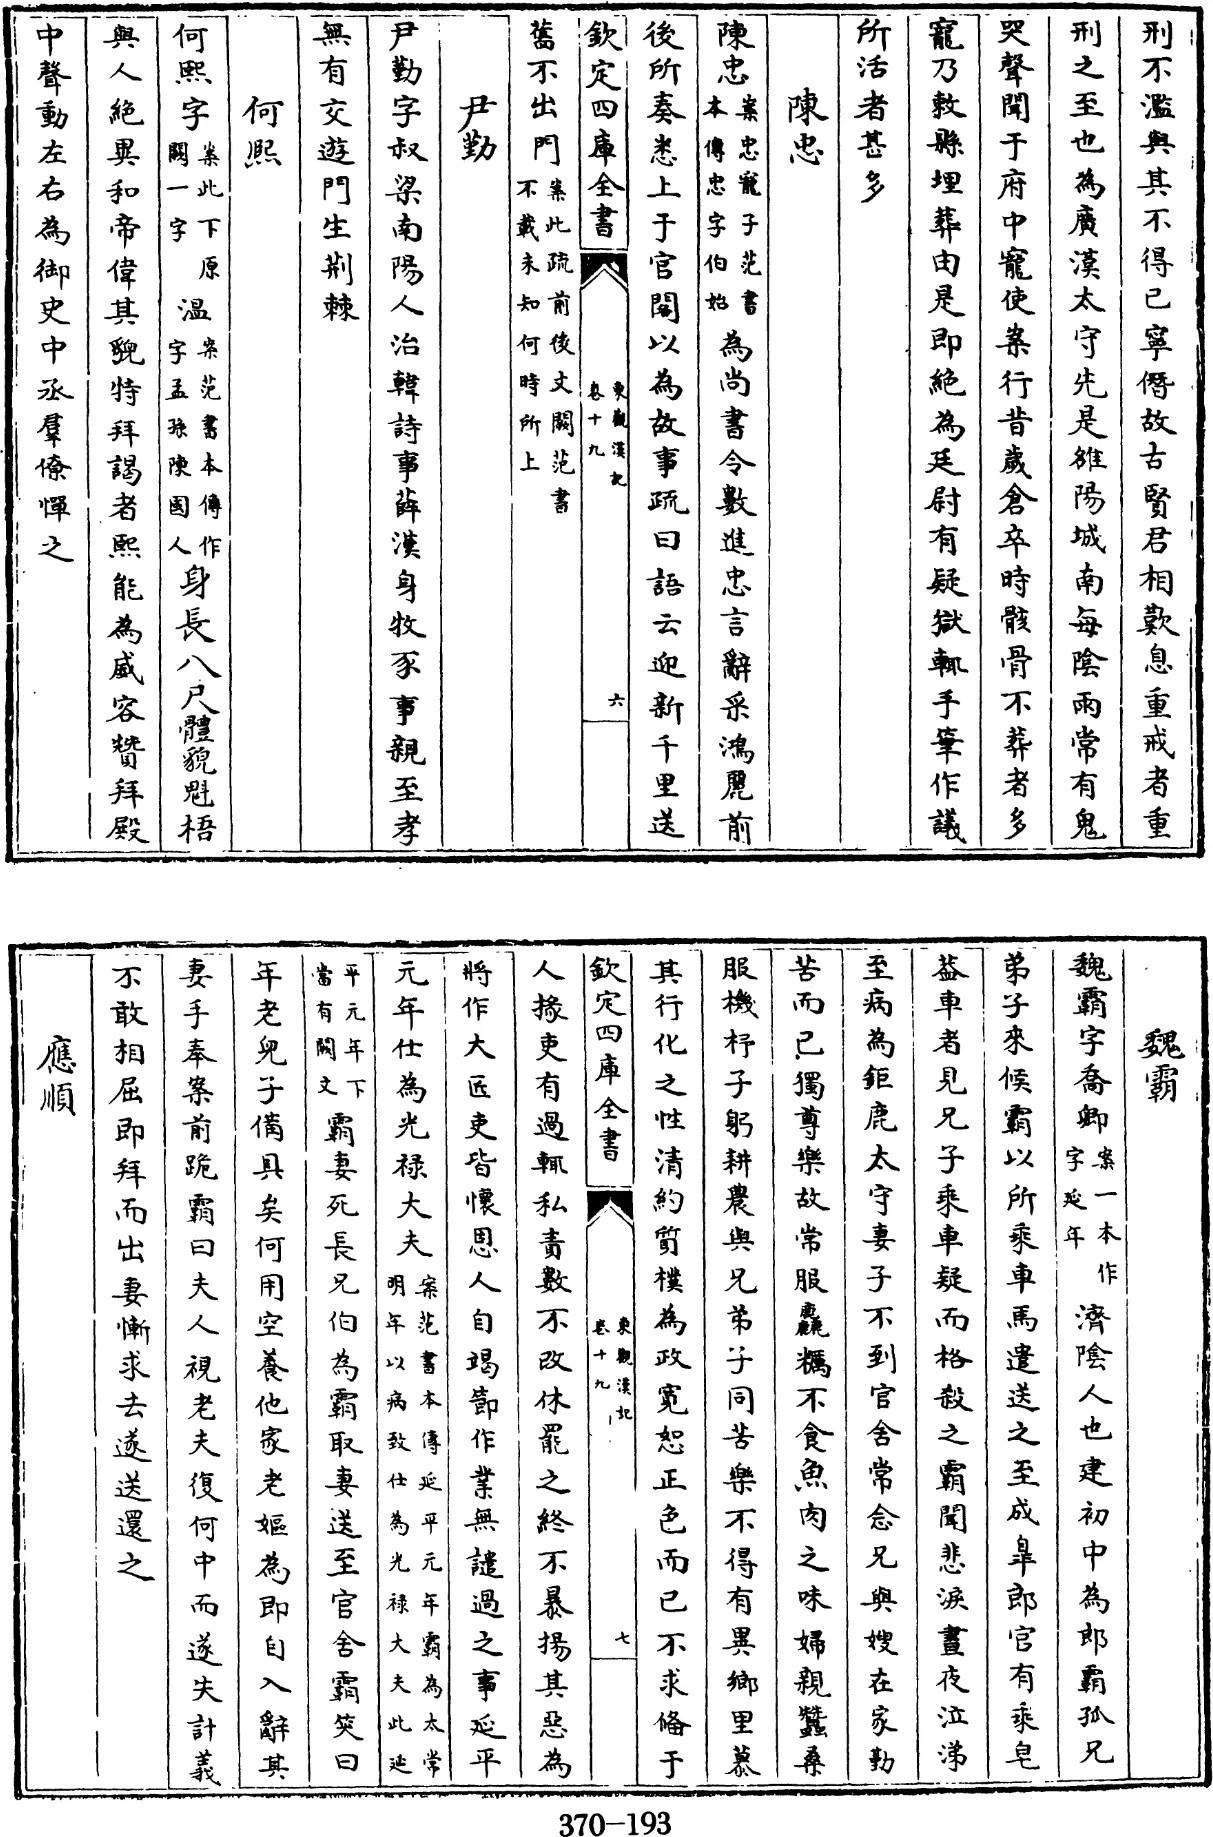 刑不濫與其不得已寧僭故古賢君相歎息重戒者重
刑之至也為廣漢太守先是雒陽城南每陰雨常有鬼
哭聲聞于府中寵使案行昔歲倉卒時骸骨不葬者多
寵乃敕縣埋葬由是即絕為廷尉有疑獄輒手筆作議
所活者甚多
陳忠
陳忠案忠寵子范書本傳忠字伯始為尚書令數進忠言辭采鴻麗前
後所奏悉上于官閣以為故事疏曰語云迎新千里送
欽定四庫全書 東觀漢記 卷十九 六
舊不出門案此疏前後文闕范書不載未知何時所上
尹勤
尹勤字叔梁南陽人治韓詩事薛漢身牧豕事親至孝
無有交遊門生荆棘
何熙
何熙字案此下原闕一字溫案范書本傳作字孟孫陳國人身長八尺體貌魁梧
與人絕異和帝偉其貌特拜謁者熙能為威容贊拜殿
中聲動左右為御史中丞羣僚憚之
魏霸
魏霸字喬卿案一本作字延年濟陰人也建初中為郎霸孤兄
弟子來候霸以所乘車馬遣送之至成皐郎官有乘皂
葢車者見兄子乘車疑而格殺之霸聞悲淚晝夜泣涕
至病為鉅鹿太守妻子不到官舍常念兄與嫂在家勤
苦而已獨尊樂故常服麤糲不食魚肉之味婦親蠶桑
服機杼子躬耕農與兄弟子同苦樂不得有異鄉里慕
其行化之性清約質樸為政寬恕正色而已不求備于
欽定四庫全書 東觀漢記 卷十九 七
人掾吏有過輒私責數不改休罷之終不暴揚其惡為
將作大匠吏皆懷恩人自竭節作業無譴過之事延平
元年仕為光祿大夫案范書本傳延平元年霸為太常明年以病致仕為光祿大夫此延
平元年下當有闕文霸妻死長兄伯為霸取妻送至官舍霸笑曰
年老兒子備具矣何用空養他家老嫗為即自入辭其
妻手奉案前跪霸曰夫人視老夫復何中而遂失計義
不敢相屈即拜而出妻慚求去遂送還之
應順
370-193